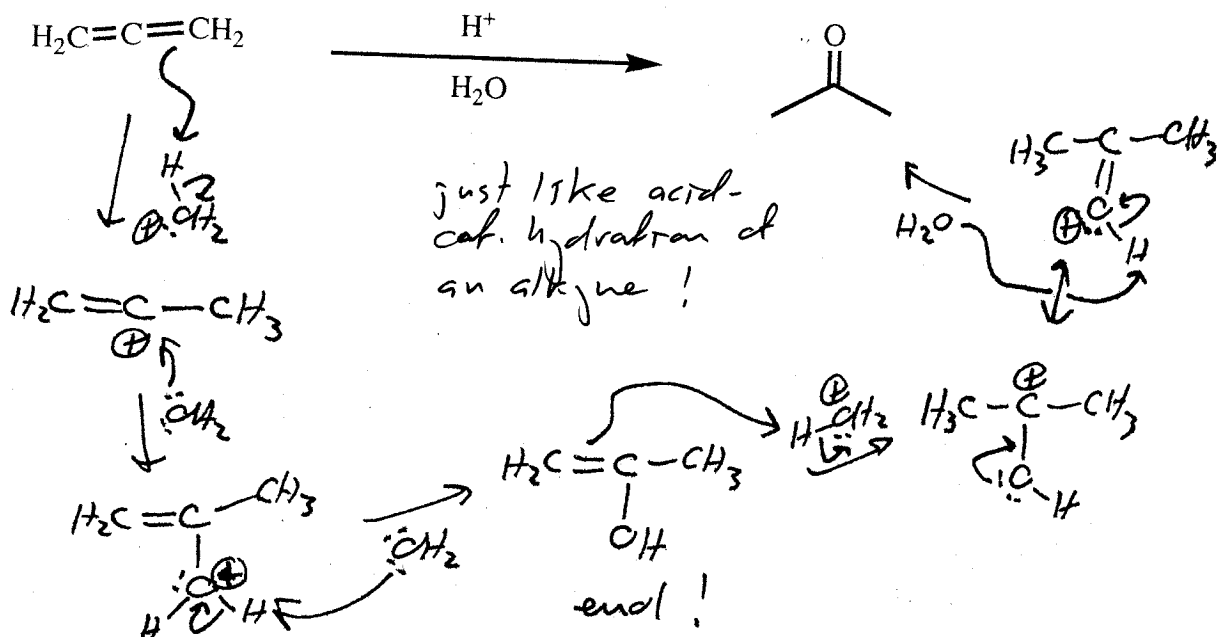 H₂C=C=CH₂
H⁺
H₂O
O
H
⊕:OH₂
just like acid-
cat. hydration of
an alkyne !
H₃C-C-CH₃
O
⊕
H
H₂O
H₂C=C-CH₃
⊕
:OH₂
H₂C=C
CH₃
:O⊕
H H
:OH₂
H₂C=C-CH₃
OH
enol !
⊕
H-OH₂
⊕
H₃C-C-CH₃
:O
H